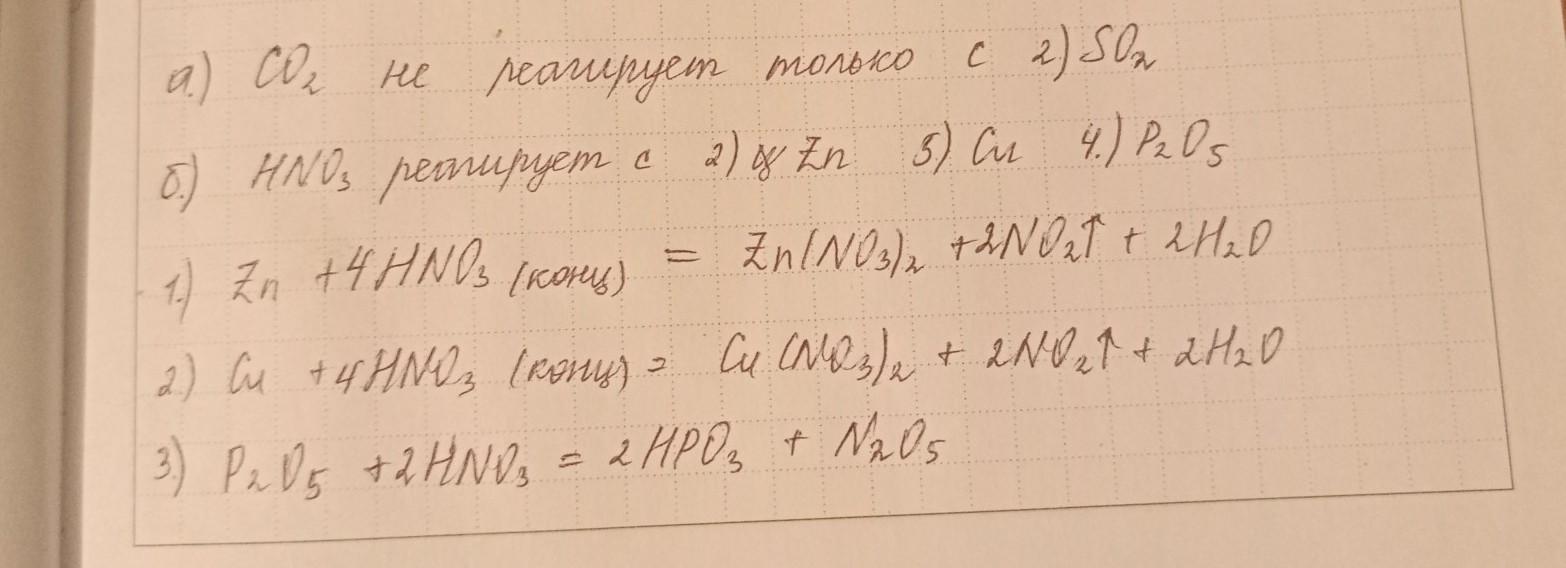 а.) CO₂ не реагирует только с 2) SO₂
б.) HNO₃ реагирует с 2) Zn 5) Cu 4.) P₂O₅
1.) Zn + 4HNO₃ (конц) = Zn(NO₃)₂ + 2NO₂↑ + 2H₂O
2.) Cu + 4HNO₃ (конц) = Cu(NO₃)₂ + 2NO₂↑ + 2H₂O
3.) P₂O₅ + 2HNO₃ = 2HPO₃ + N₂O₅